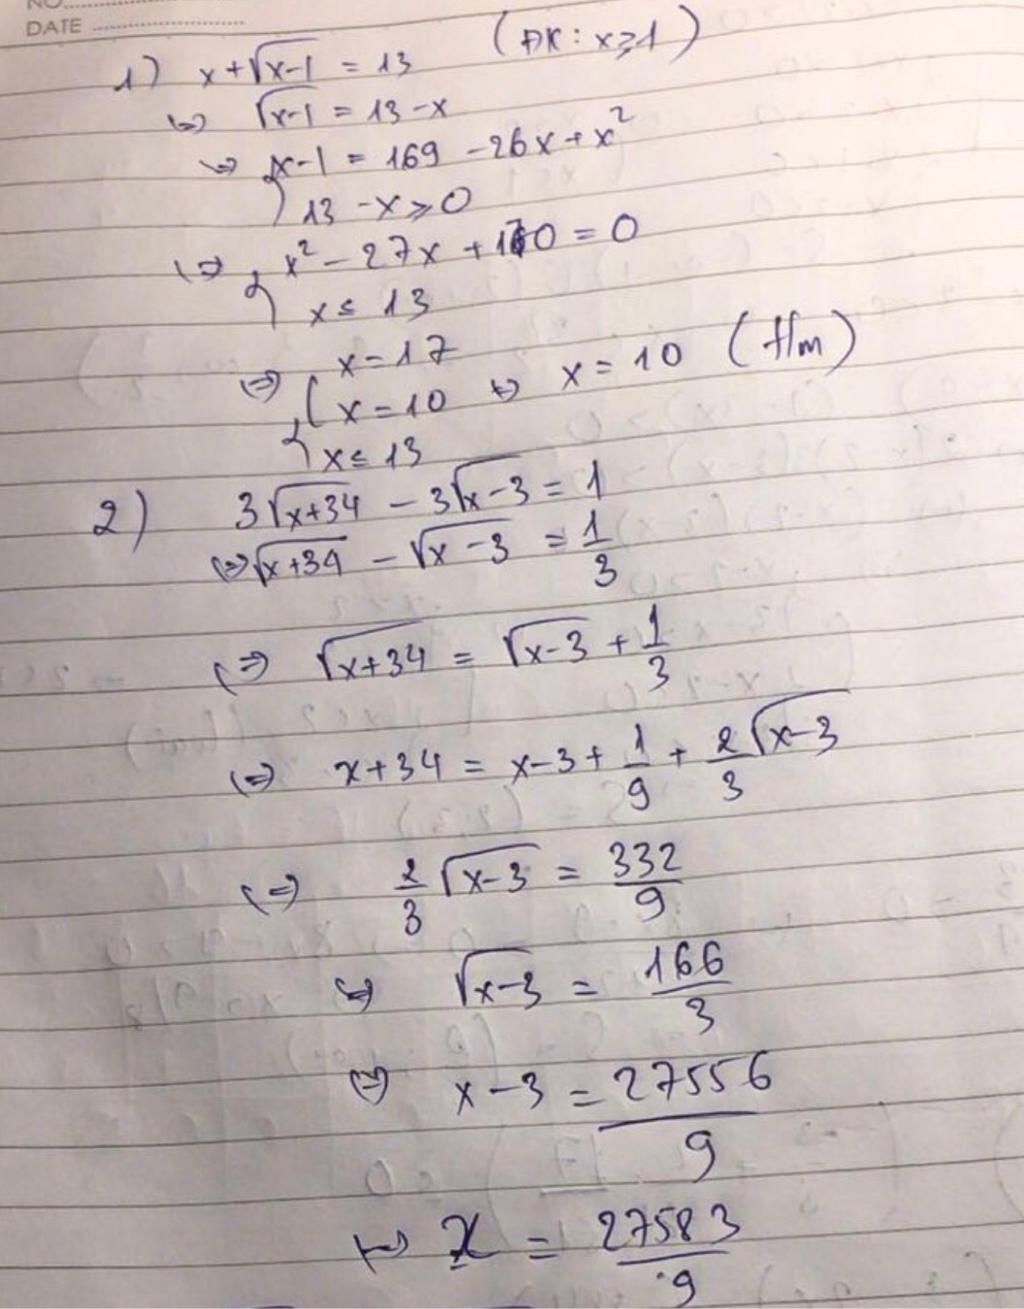 NO.
DATE
1) x + √(x-1) = 13 (ĐK: x ≥ 1)
⇔ √(x-1) = 13 - x
⇔ { x - 1 = 169 - 26x + x²
13 - x ≥ 0
⇔ { x² - 27x + 170 = 0
x ≤ 13
⇔ { [ x = 17
x = 10 ⇔ x = 10 (t/m)
x ≤ 13
2) 3√(x+34) - 3√(x-3) = 1
⇔ √(x+34) - √(x-3) = 1/3
⇔ √(x+34) = √(x-3) + 1/3
⇔ x + 34 = x - 3 + 1/9 + 2/3 √(x-3)
⇔ 2/3 √(x-3) = 332/9
⇔ √(x-3) = 166/3
⇔ x - 3 = 27556/9
⇔ x = 27583/9